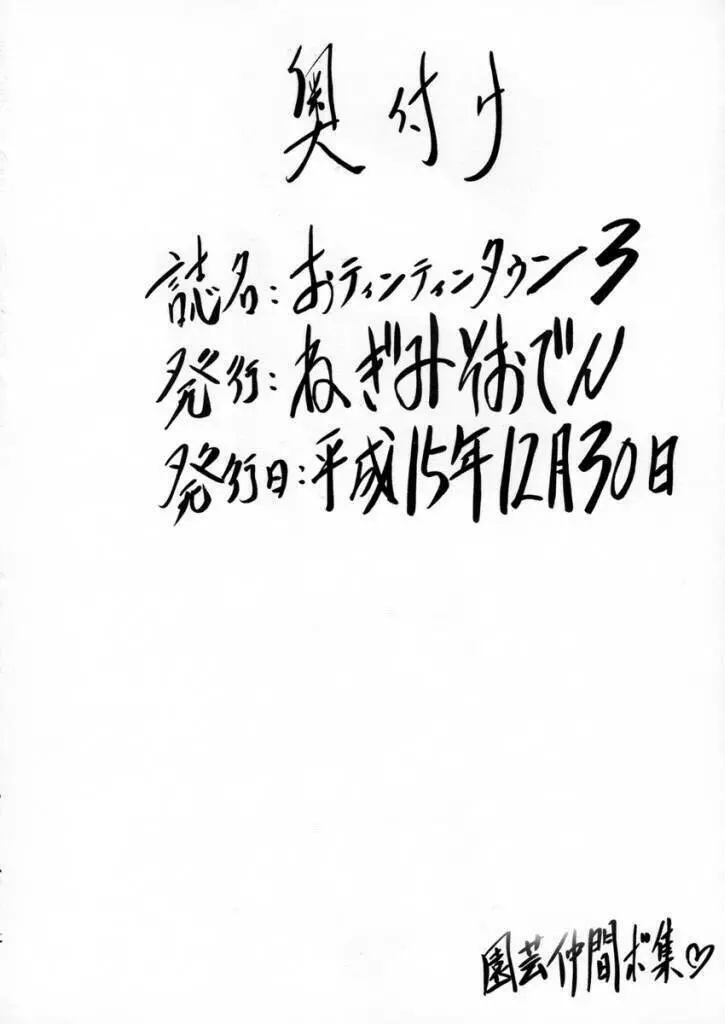 奥付け
誌名:おティンティンタウン3
発行:ねぎみそおでん
発行日:平成15年12月30日
園芸仲間ボ集♡